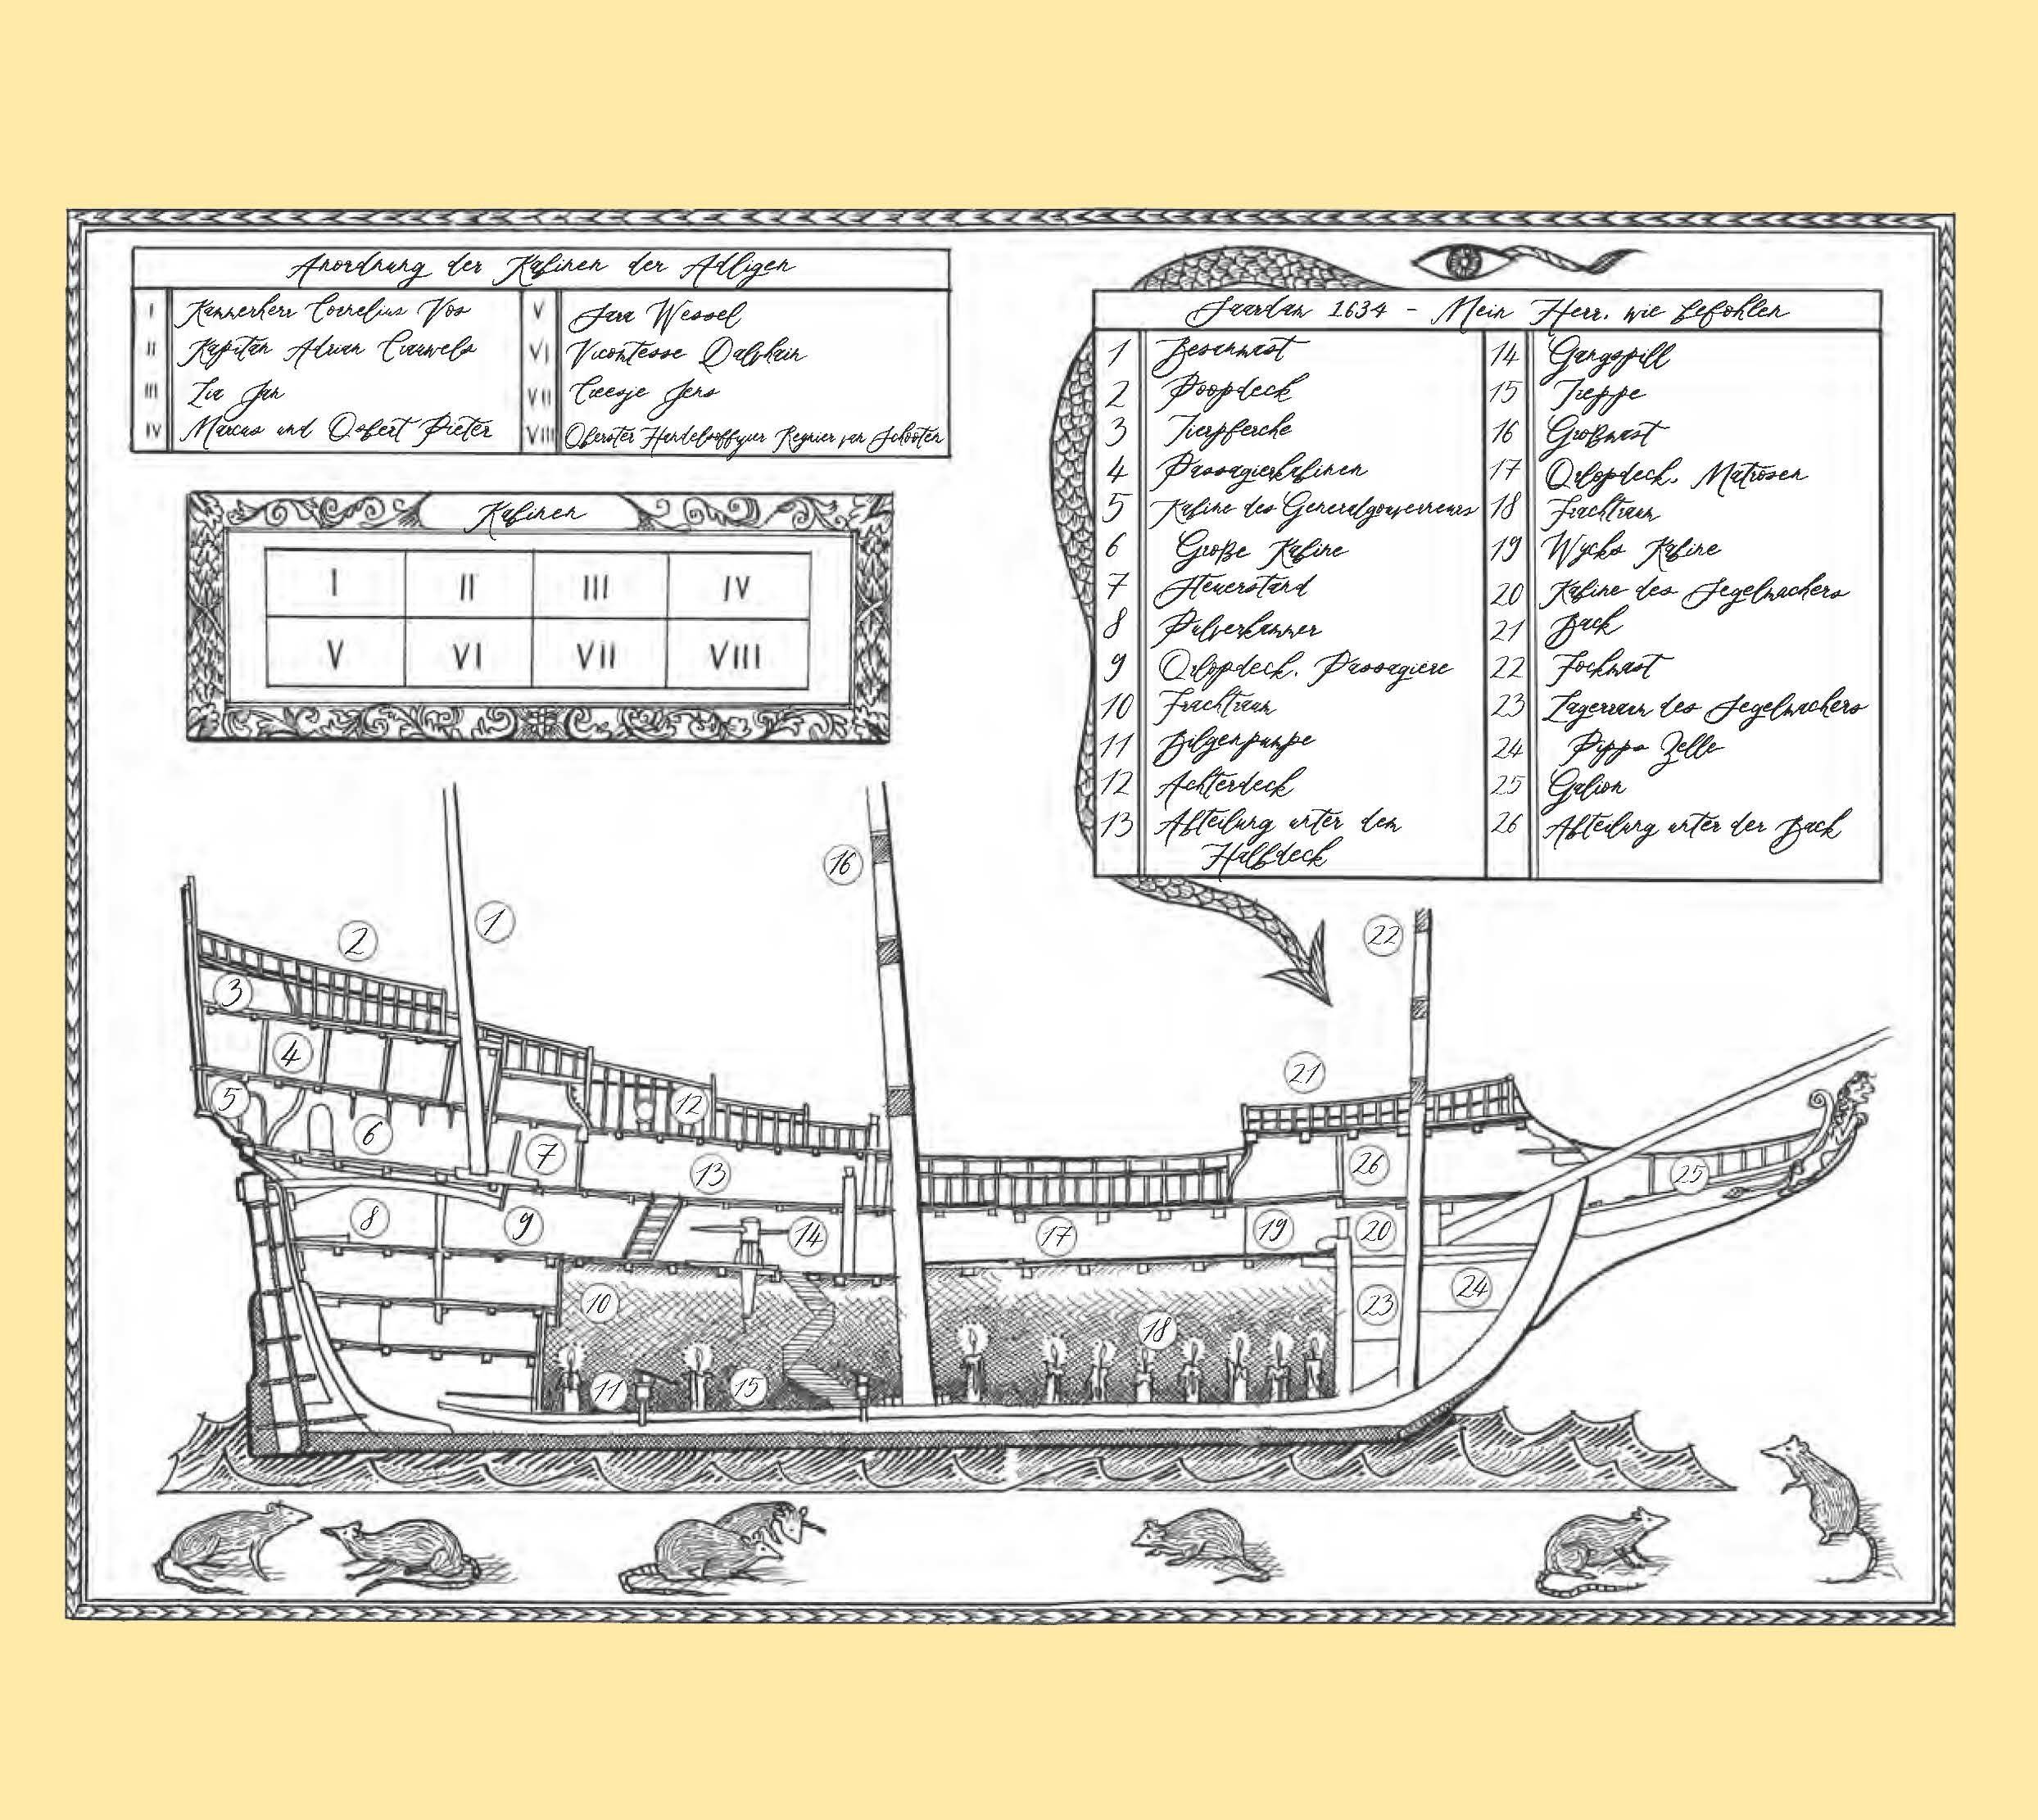 Anordnung der Kabinen der Adligen
I Kammerherr Cornelius Vos
II Kapitän Adrian Crauwels
III Lia Jan
IV Marcus und Osbert Pieter
V Sara Wessel
VI Vicomtesse Dalvhain
VII Creesje Jens
VIII Oberster Handelsoffizier Regnier van Schooten
Kabinen
I II III IV
V VI VII VIII
Saardam 1634 - Mein Herr, wie befohlen
1 Besanmast
2 Poopdeck
3 Tierpferche
4 Passagierkabinen
5 Kabine des Generalgouverneurs
6 Große Kabine
7 Steuerstand
8 Pulverkammer
9 Orlopdeck, Passagiere
10 Frachtraum
11 Bilgenpumpe
12 Achterdeck
13 Abteilung unter dem
Halbdeck
14 Gangspill
15 Treppe
16 Großmast
17 Orlopdeck, Matrosen
18 Frachtraum
19 Wycks Kabine
20 Kabine des Segelmachers
21 Back
22 Fockmast
23 Lagerraum des Segelmachers
24 Pipps Zelle
25 Galion
26 Abteilung unter der Back
16
1
2
22
3
4
21
5
12
6
7
13
26
25
8
9
14
17
19
20
10
18
23
24
11
15